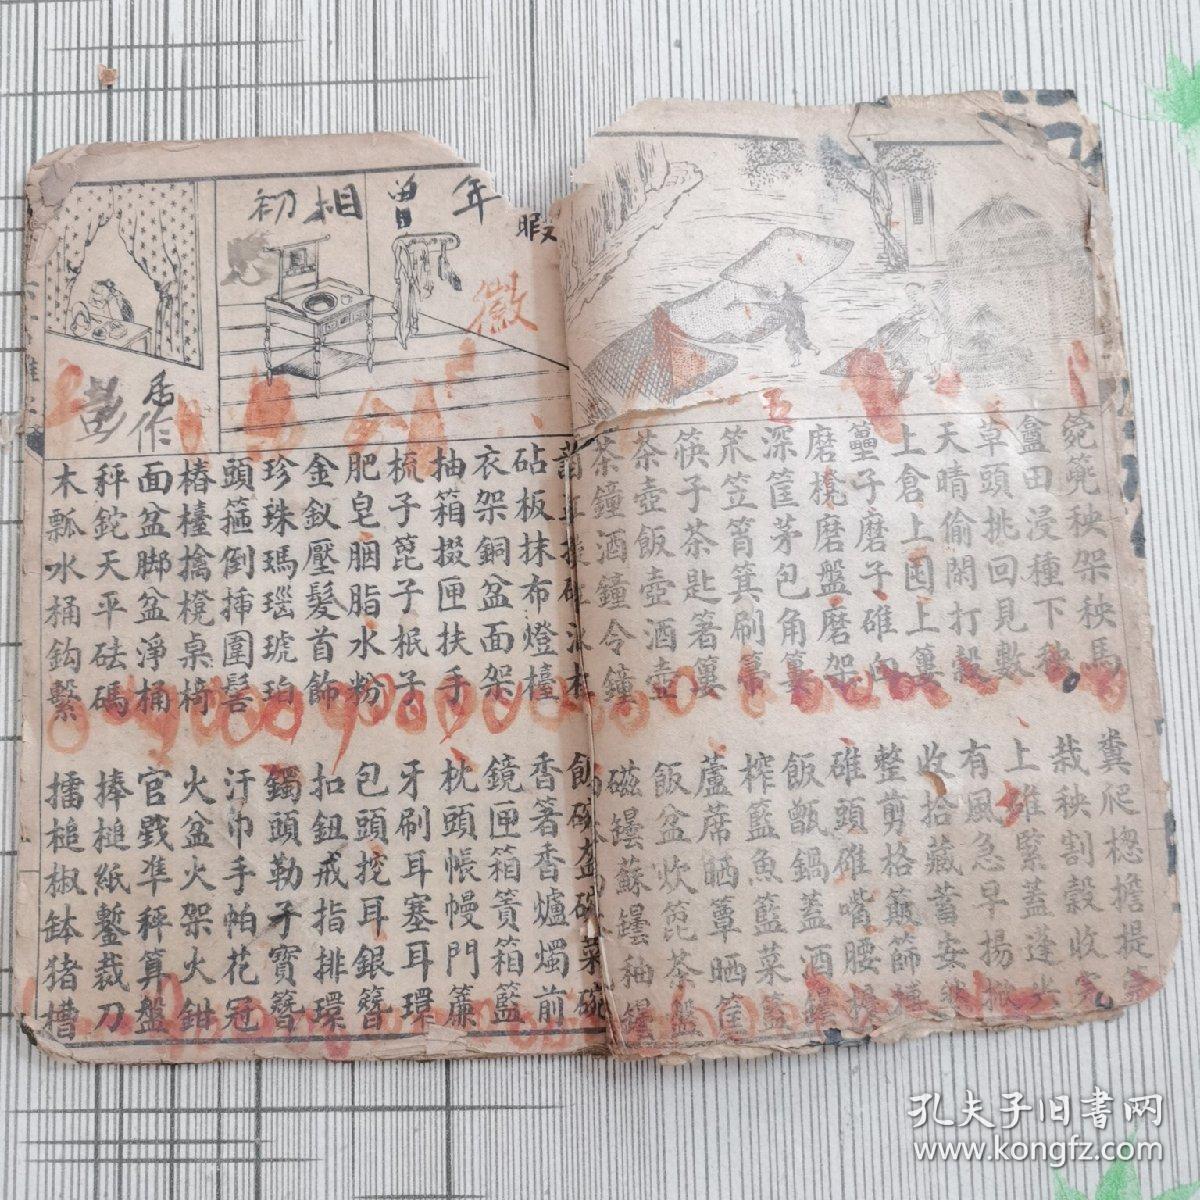 初相曾年
暇
徵
黄
香
作
五
箢篼秧架秧馬
糞爬楤擔提
盒田浸種下秧
栽秧割穀收
草頭挑回見數
上碓緊蓋蓬
天晴偷閑打穀
有風急早揚
上倉上囤上簍
收拾藏蓄安
礱子磨子碓
整剪格篩
磨欖磨盤磨架
碓頭碓嘴腰
深筐茅包角簍
飯甑鍋蓋酒
笊笠筲箕刷箒
榨籃魚籃菜籃
筷子茶匙箸簍
蘆蓆晒簟晒筐
茶壺飯壺酒壺
飯盆炊篦茶盤
茶鐘酒鐘令鐘
磁罍蘇罍秞罍
飯碗
菜碗
砧板抹布燈檯
香箸香爐燭前
衣架銅盆面架
鏡匣箱簀箱籃
抽箱掇匣扶手
枕頭帳幔門簾
梳子篦子梘子
牙刷耳塞耳環
肥皂胭脂水粉
包頭挖耳銀簪
金釵壓髮首飾
扣鈕戒指排環
珍珠瑪瑙琥珀
鐲頭勒子寶簪
頭箍倒插圍髻
汗巾手帕花冠
樁檯擒櫈桌椅
火盆火架火鉗
面盆脚盆淨桶
官戥準秤算盤
秤鉈天平砝碼
捧槌紙鏨裁刀
木瓢水桶鈎繫
擂槌椒鉢猪槽
孔夫子旧書网
www.kongfz.com